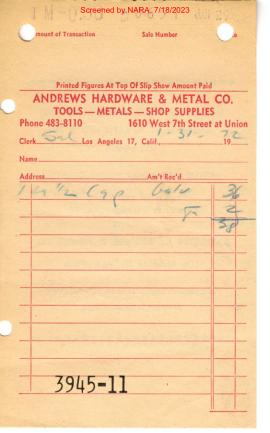 Screened by NARA, 7/18/2023
mount of Transaction Sale Number
Printed Figures At Top Of Slip Show Amount Paid
ANDREWS HARDWARE & METAL CO.
TOOLS — METALS — SHOP SUPPLIES
Phone 483-8110 1610 West 7th Street at Union
Clerk Los Angeles 17, Calif., 1-31-72 19
Name
Address Am't Rec'd
1 1/2 Cap Galv 36
T 2
38
3945-11